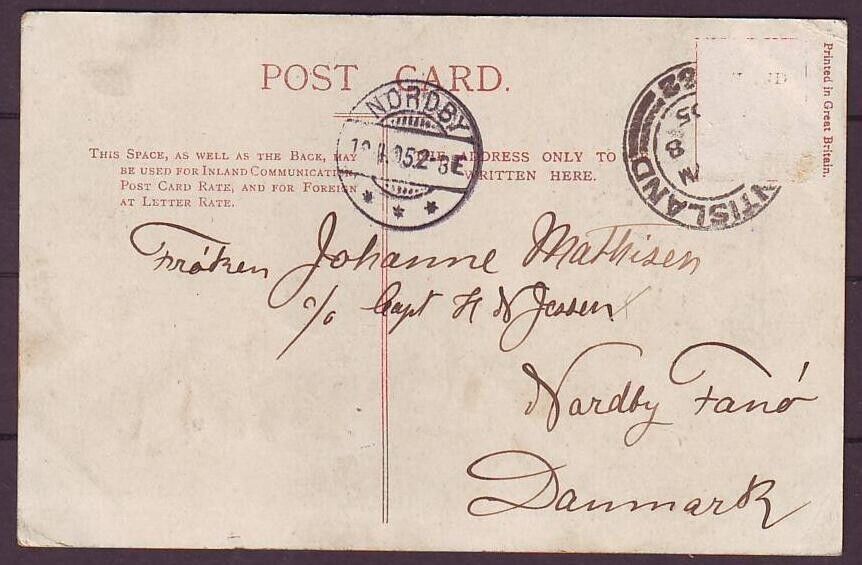 POST CARD.
Printed in Great Britain.
THIS SPACE, AS WELL AS THE BACK, MAY
BE USED FOR INLAND COMMUNICATION,
POST CARD RATE, AND FOR FOREIGN
AT LETTER RATE.
ADDRESS ONLY TO
WRITTEN HERE.
NORDBY
NTISLAND
Frøken Johanne Mathisen
c/o Capt H N Jessen
Nordby Fanø
Danmark